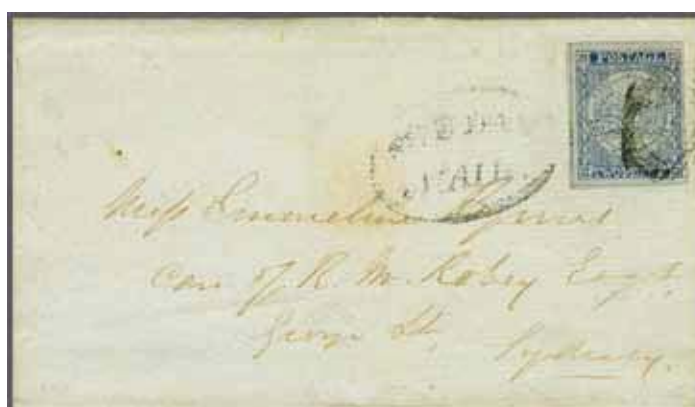 POSTAGE
MAIL
Miss Emmeline
care of R. M. Robey Esqr.
George St.
Sydney.